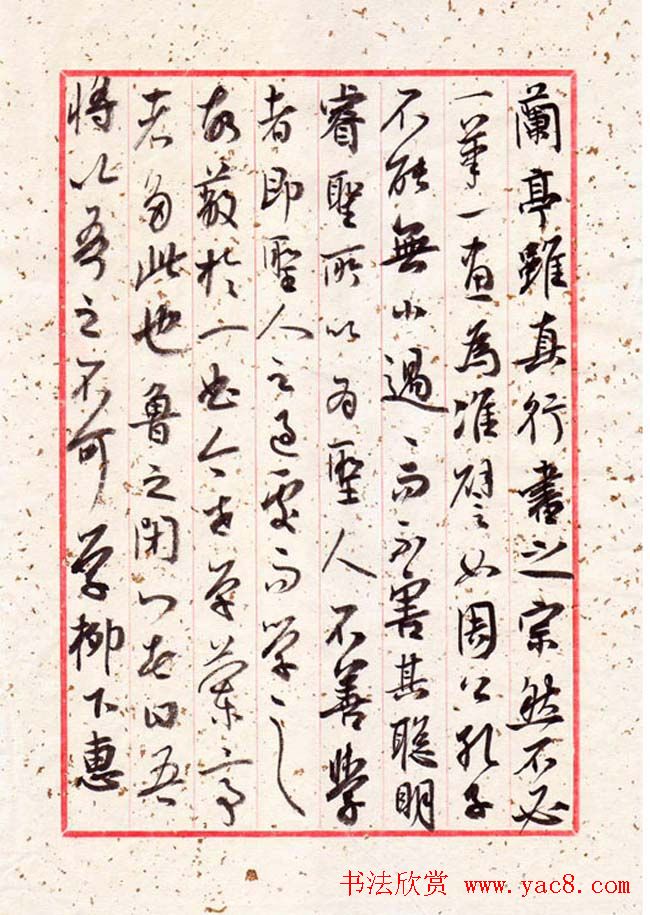 蘭亭雖真行書之宗然不必
一筆一畫為准譬如周公孔子
不能無小過過而不害其聰明
睿聖所以為聖人不善學
者即聖人之過處而學之
故蔽於一曲今世學蘭亭
者多此也魯之閉門者曰吾
將以吾之不可學柳下惠
书法欣赏 www.yac8.com